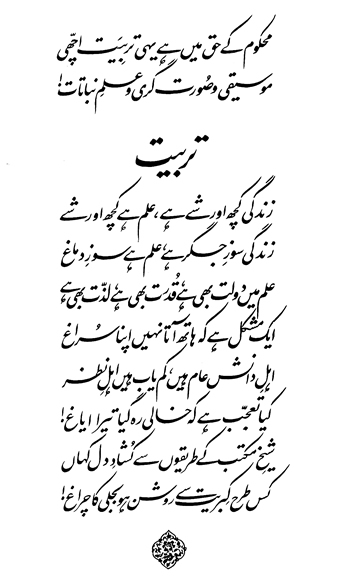 محکوم کے حق میں ہے یہی تربیت اچھی
موسیقی و صورت گری و علمِ نباتات!
تربیت
زندگی کچھ اور شے ہے، علم ہے کچھ اور شے
زندگی سوزِ جگر ہے، علم ہے سوزِ دماغ
علم میں دولت بھی ہے، قدرت بھی ہے، لذت بھی ہے
ایک مشکل ہے کہ ہاتھ آتا نہیں اپنا سراغ
اہلِ دانش عام ہیں، کم یاب ہیں اہلِ نظر
کیا تعجب ہے کہ خالی رہ گیا تیرا ایاغ!
شیخِ مکتب کے طریقوں سے کشادِ دل کہاں
کس طرح کبریت سے روشن ہو بجلی کا چراغ!